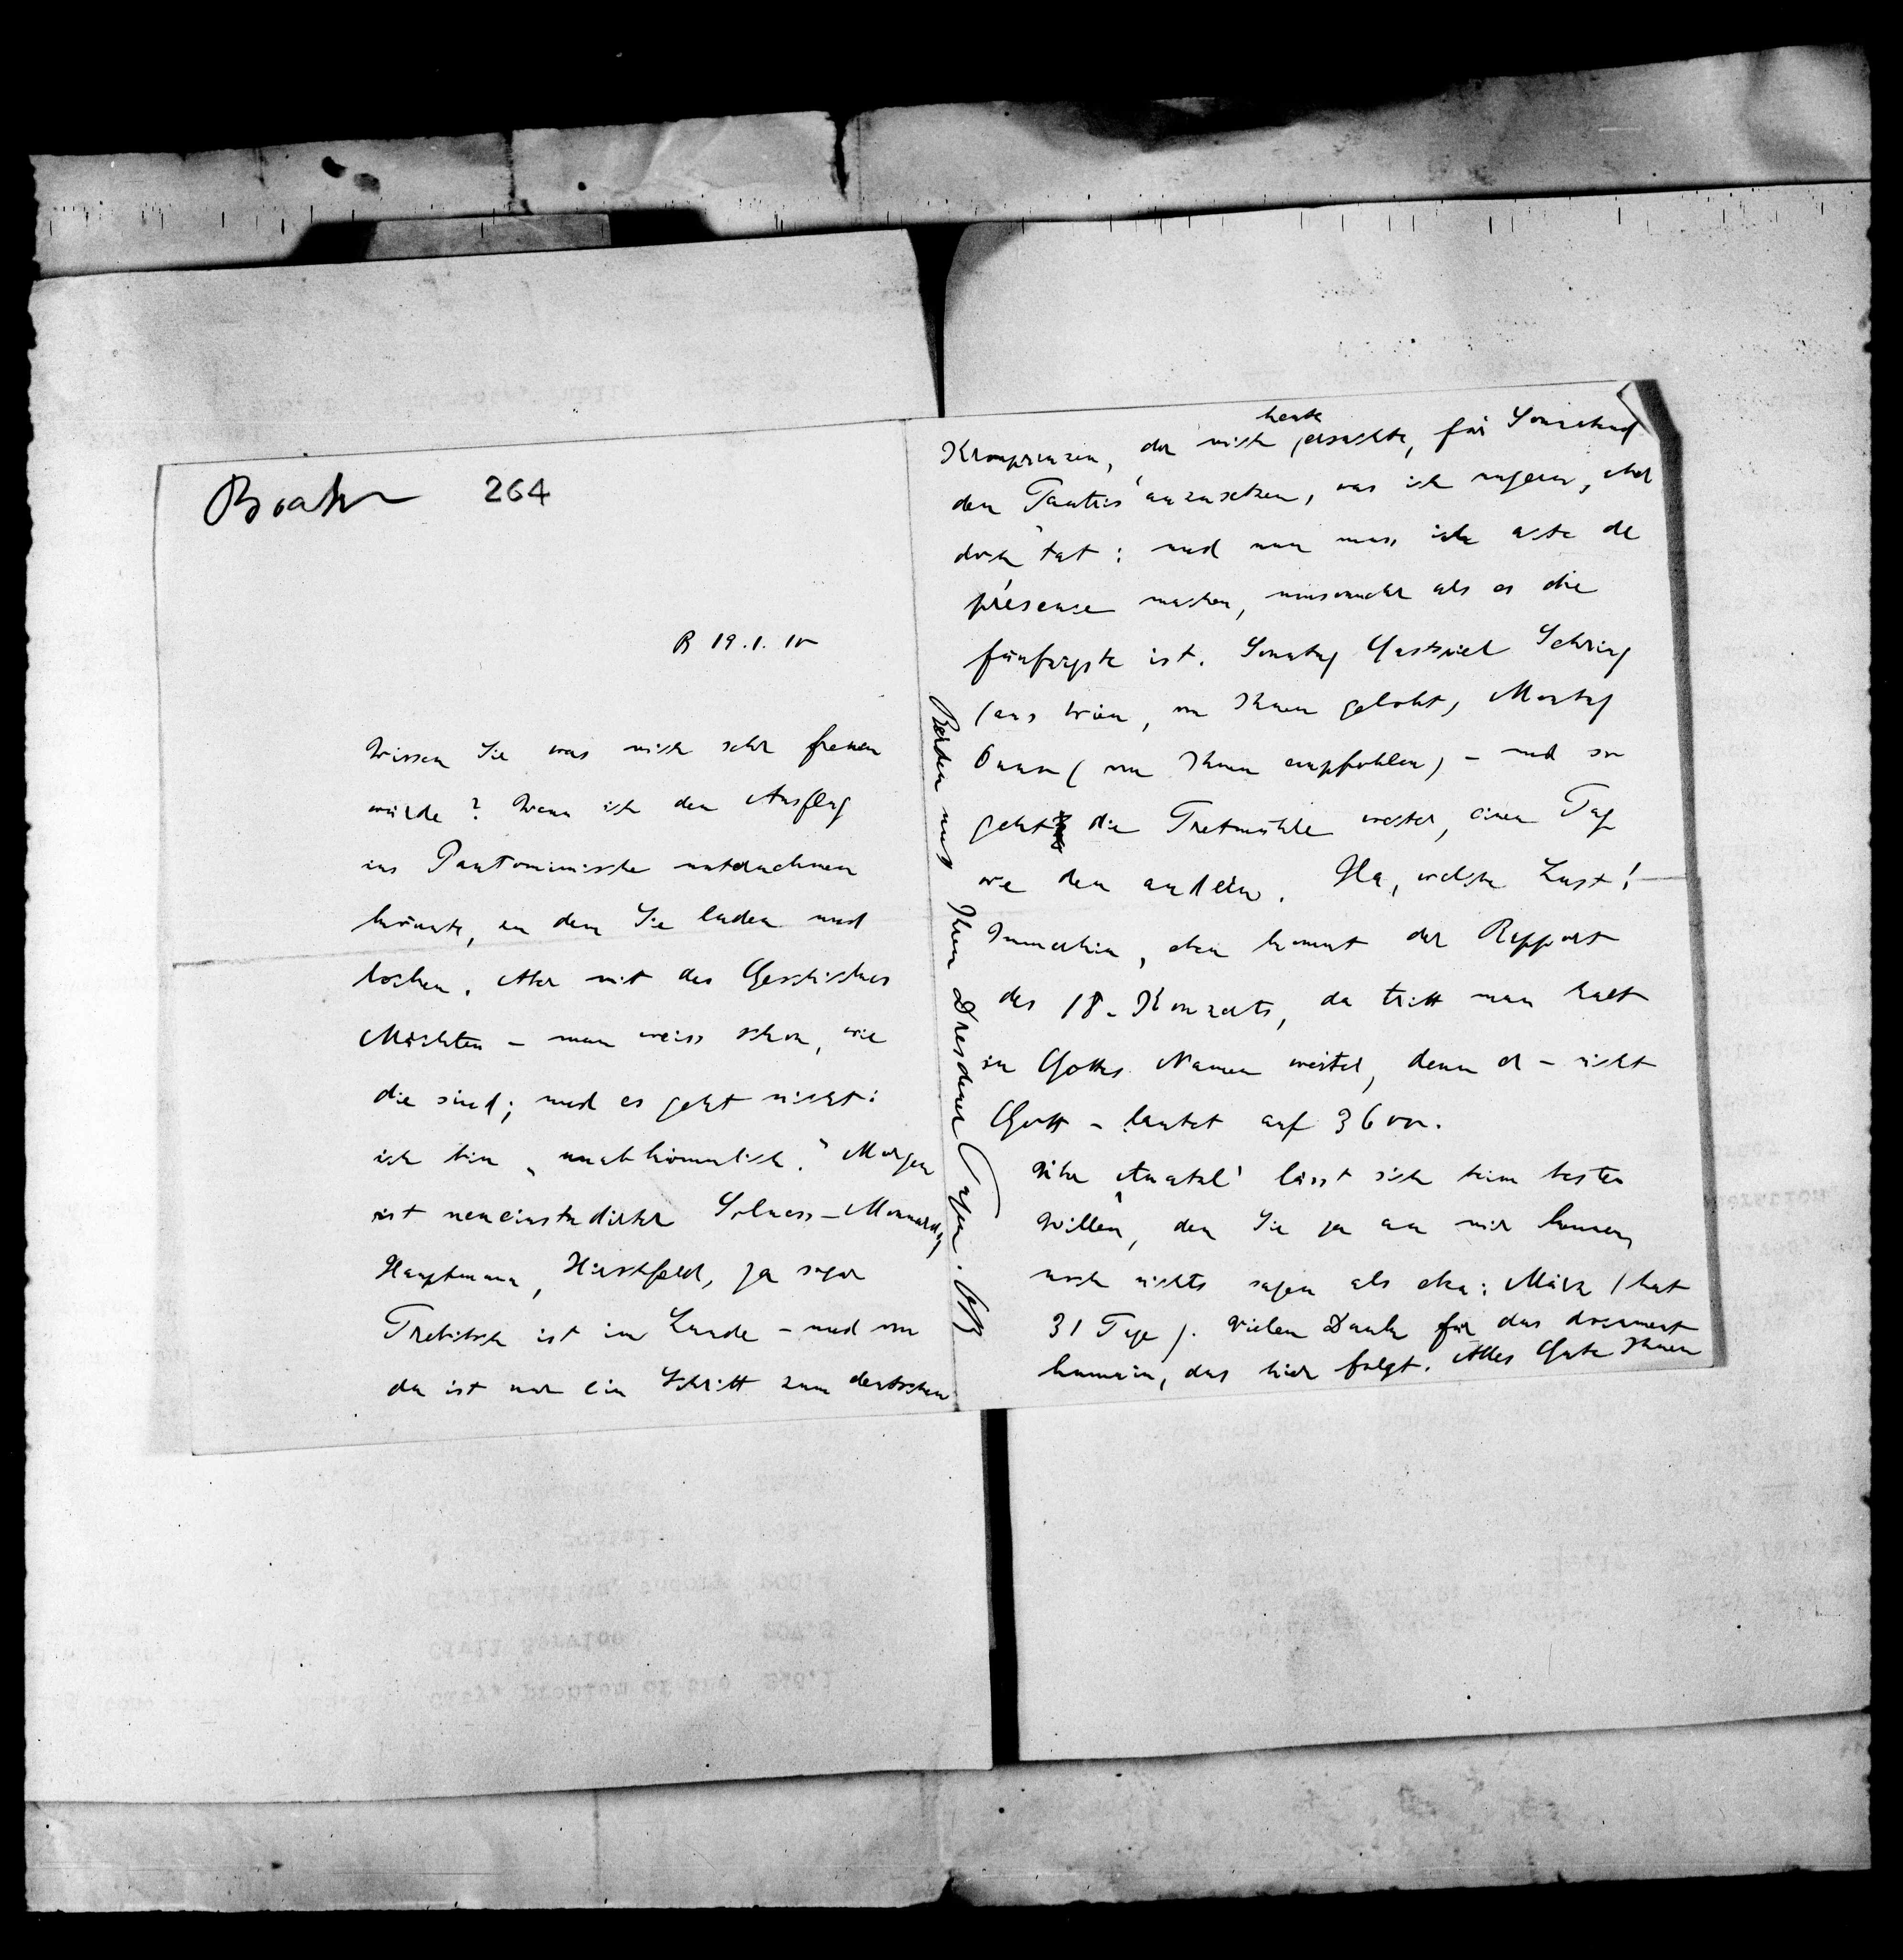 Brahm 264
B 19.1.10
Wissen Sie was mich sehr freuen
würde? Wenn ich den Ausflug
ins Pantomimische unternehmen
könnte, zu dem Sie laden und
locken. Aber mit des Geschickes
Mächten – man weiss schon, wie
die sind; und es geht nicht:
ich bin „unabkömmlich." Morgen
ist neueinstudirter Solness – Monnard,
Hauptmann, Hirschfeld, ja sogar
Trebitsch ist im Lande – und von
da ist nur ein Schritt zum deutschen
Kronprinzen, der mich heute ersuchte, für Sonnabend
den ‚Tantris' anzusetzen, was ich ungern, aber
doch tat: und nun muss ich acte de
présence machen, umsomehr als es die
fünfzigste ist. Sonntag Gastspiel Schring
(aus Wien, von Ihnen gelobt, Montag
(von Ihnen empfohlen) – und so
geht die Tretmühle weiter, einen Tag
wie den andern. Ha, welche Lust!
Immerhin, eben kommt der Rapport
des 18. Konzerts, da tritt man halt
in Gottes Namen weiter, denn er – nicht
Gott – lautet auf 3600.
Über ‚Anatol' lässt sich beim besten
Willen, den Sie ja an mir kennen,
noch nichts sagen als etwa: März (hat
31 Tage). Vielen Dank für das document
humain, das hier folgt. Alles Gute Ihnen
Beiden und Ihren Dresdener Tagen. OB